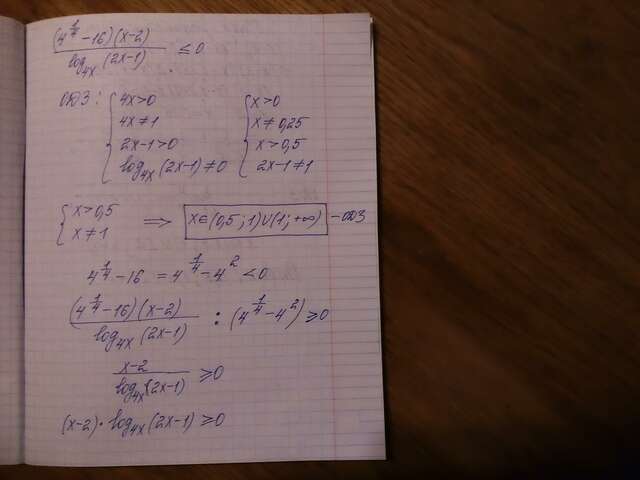 (4^(1/4) - 16)(x-2) / log_4x (2x-1) ≤ 0
ОДЗ: { 4x>0 { x>0
4x≠1 x≠0,25
2x-1>0 x>0,5
log_4x (2x-1)≠0 2x-1≠1
{ x>0,5
x≠1 ⟹ x∈(0,5;1)∪(1;+∞) - ОДЗ
4^(1/4) - 16 = 4^(1/4) - 4^2 < 0
(4^(1/4) - 16)(x-2) / log_4x (2x-1) : (4^(1/4) - 4^2) ≥ 0
x-2 / log_4x (2x-1) ≥ 0
(x-2) · log_4x (2x-1) ≥ 0